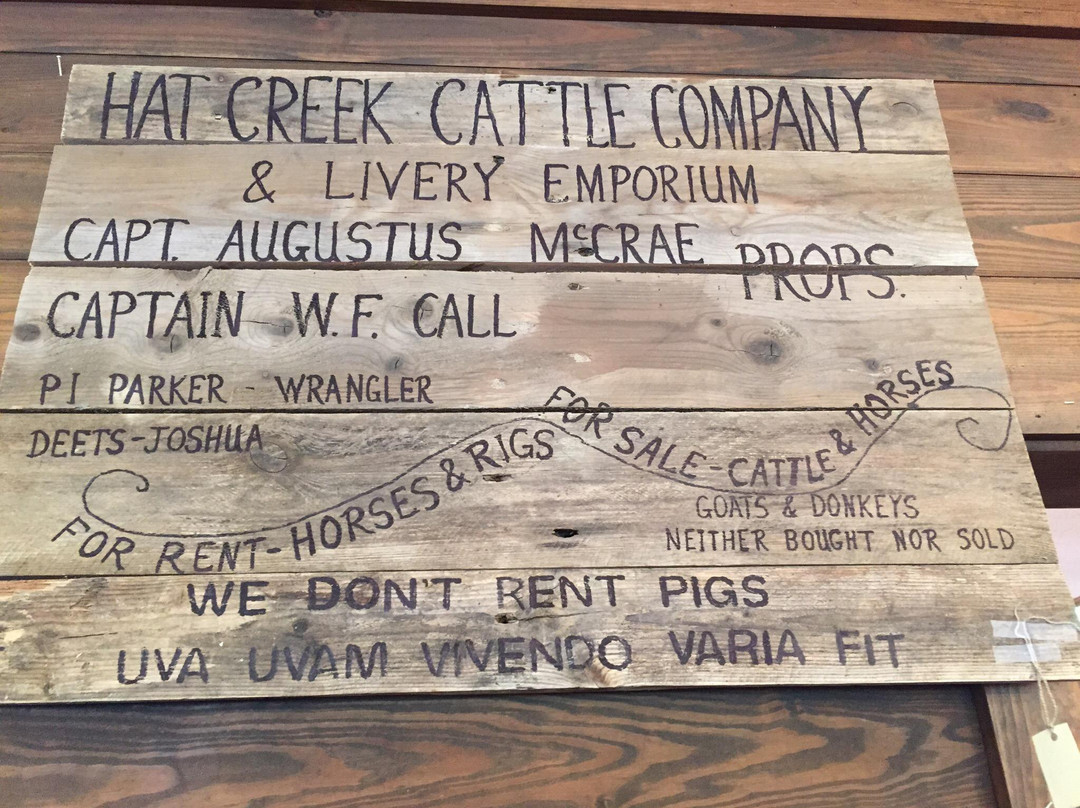 HAT CREEK CATTLE COMPANY
& LIVERY EMPORIUM
CAPT. AUGUSTUS McCRAE
PROPS.
CAPTAIN W.F. CALL
PI PARKER - WRANGLER
DEETS-JOSHUA
FOR RENT-HORSES & RIGS
FOR SALE-CATTLE & HORSES
GOATS & DONKEYS
NEITHER BOUGHT NOR SOLD
WE DON'T RENT PIGS
UVA UVAM VIVENDO VARIA FIT